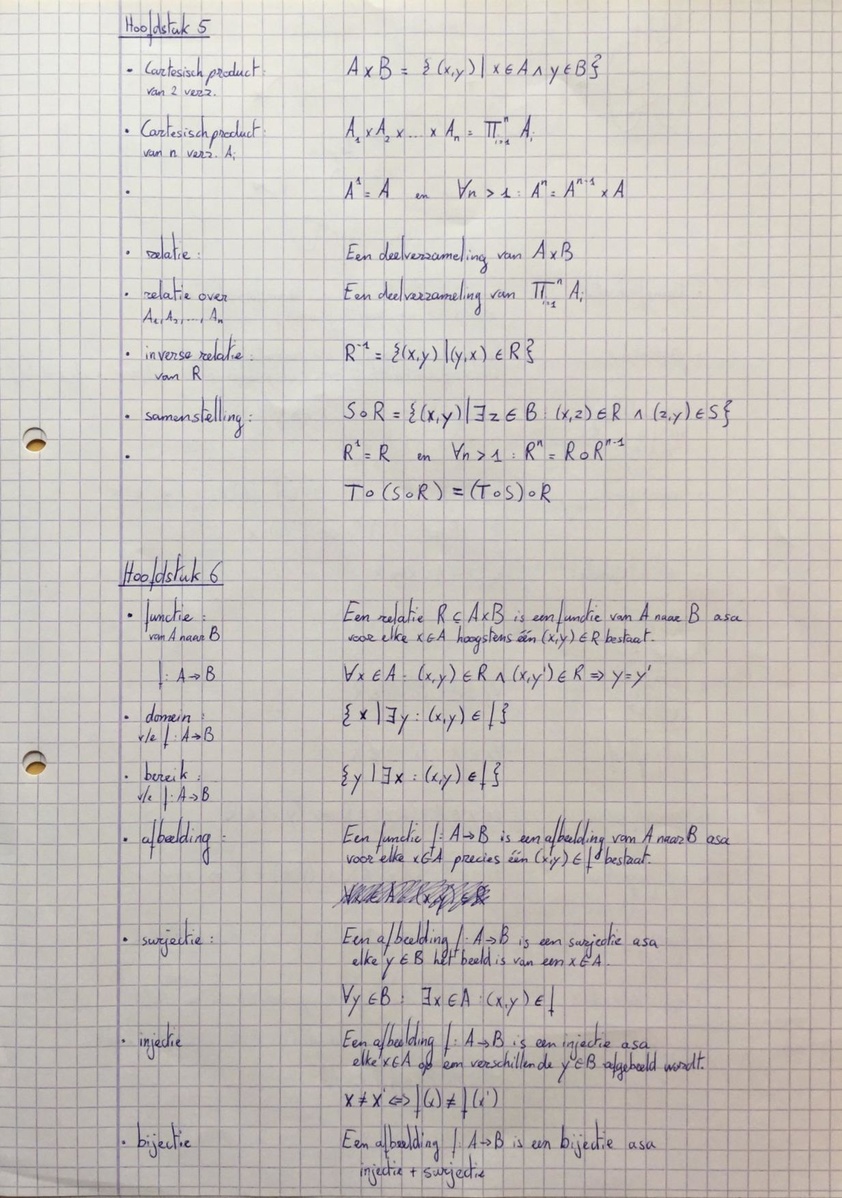 Hoofdstuk 5
• Cartesisch product: A × B = {(x,y) | x ∈ A ∧ y ∈ B}
van 2 verz.
• Cartesisch product: A₁ × A₂ × ... × Aₙ = ∏ᵢ₌₁ⁿ Aᵢ
van n verz. Aᵢ
• A¹ = A en ∀n > 1 : Aⁿ = Aⁿ⁻¹ × A
• relatie : Een deelverzameling van A × B
• relatie over Een deelverzameling van ∏ᵢ₌₁ⁿ Aᵢ
A₁, A₂, ..., Aₙ
• inverse relatie : R⁻¹ = {(x,y) | (y,x) ∈ R}
van R
• samenstelling : S ∘ R = {(x,y) | ∃z ∈ B : (x,z) ∈ R ∧ (z,y) ∈ S}
• R¹ = R en ∀n > 1 : Rⁿ = R ∘ Rⁿ⁻¹
T ∘ (S ∘ R) = (T ∘ S) ∘ R
Hoofdstuk 6
• functie : Een relatie R ⊆ A × B is een functie van A naar B asa
van A naar B voor elke x ∈ A hoogstens één (x,y) ∈ R bestaat.
f : A → B ∀x ∈ A : (x,y) ∈ R ∧ (x,y') ∈ R ⇒ y = y'
• domein : {x | ∃y : (x,y) ∈ f}
v/e f : A → B
• bereik : {y | ∃x : (x,y) ∈ f}
v/e f : A → B
• afbeelding : Een functie f : A → B is een afbeelding van A naar B asa
voor elke x ∈ A precies één (x,y) ∈ f bestaat.
• surjectie : Een afbeelding f : A → B is een surjectie asa
elke y ∈ B het beeld is van een x ∈ A.
∀y ∈ B : ∃x ∈ A : (x,y) ∈ f
• injectie Een afbeelding f : A → B is een injectie asa
elke x ∈ A op een verschillende y ∈ B afgebeeld wordt.
x ≠ x' ⇔ f(x) ≠ f(x')
• bijectie Een afbeelding f : A → B is een bijectie asa
injectie + surjectie